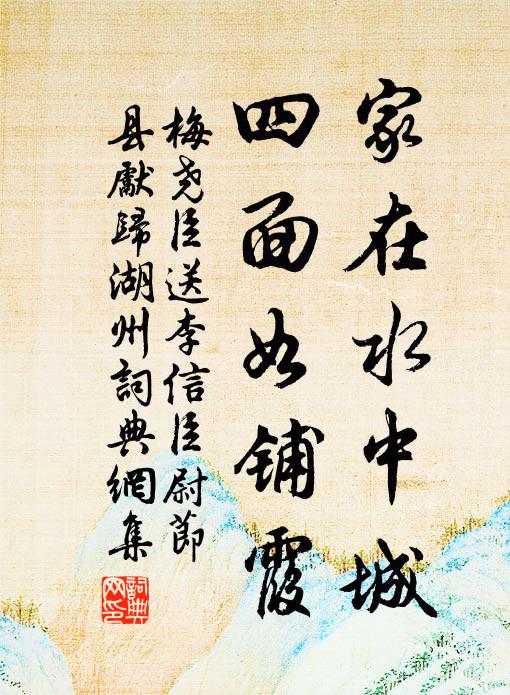 家在水中城
四面如铺霞
梅尧臣送李信臣尉節
县獻歸湖州詞典網集
詞典
网印